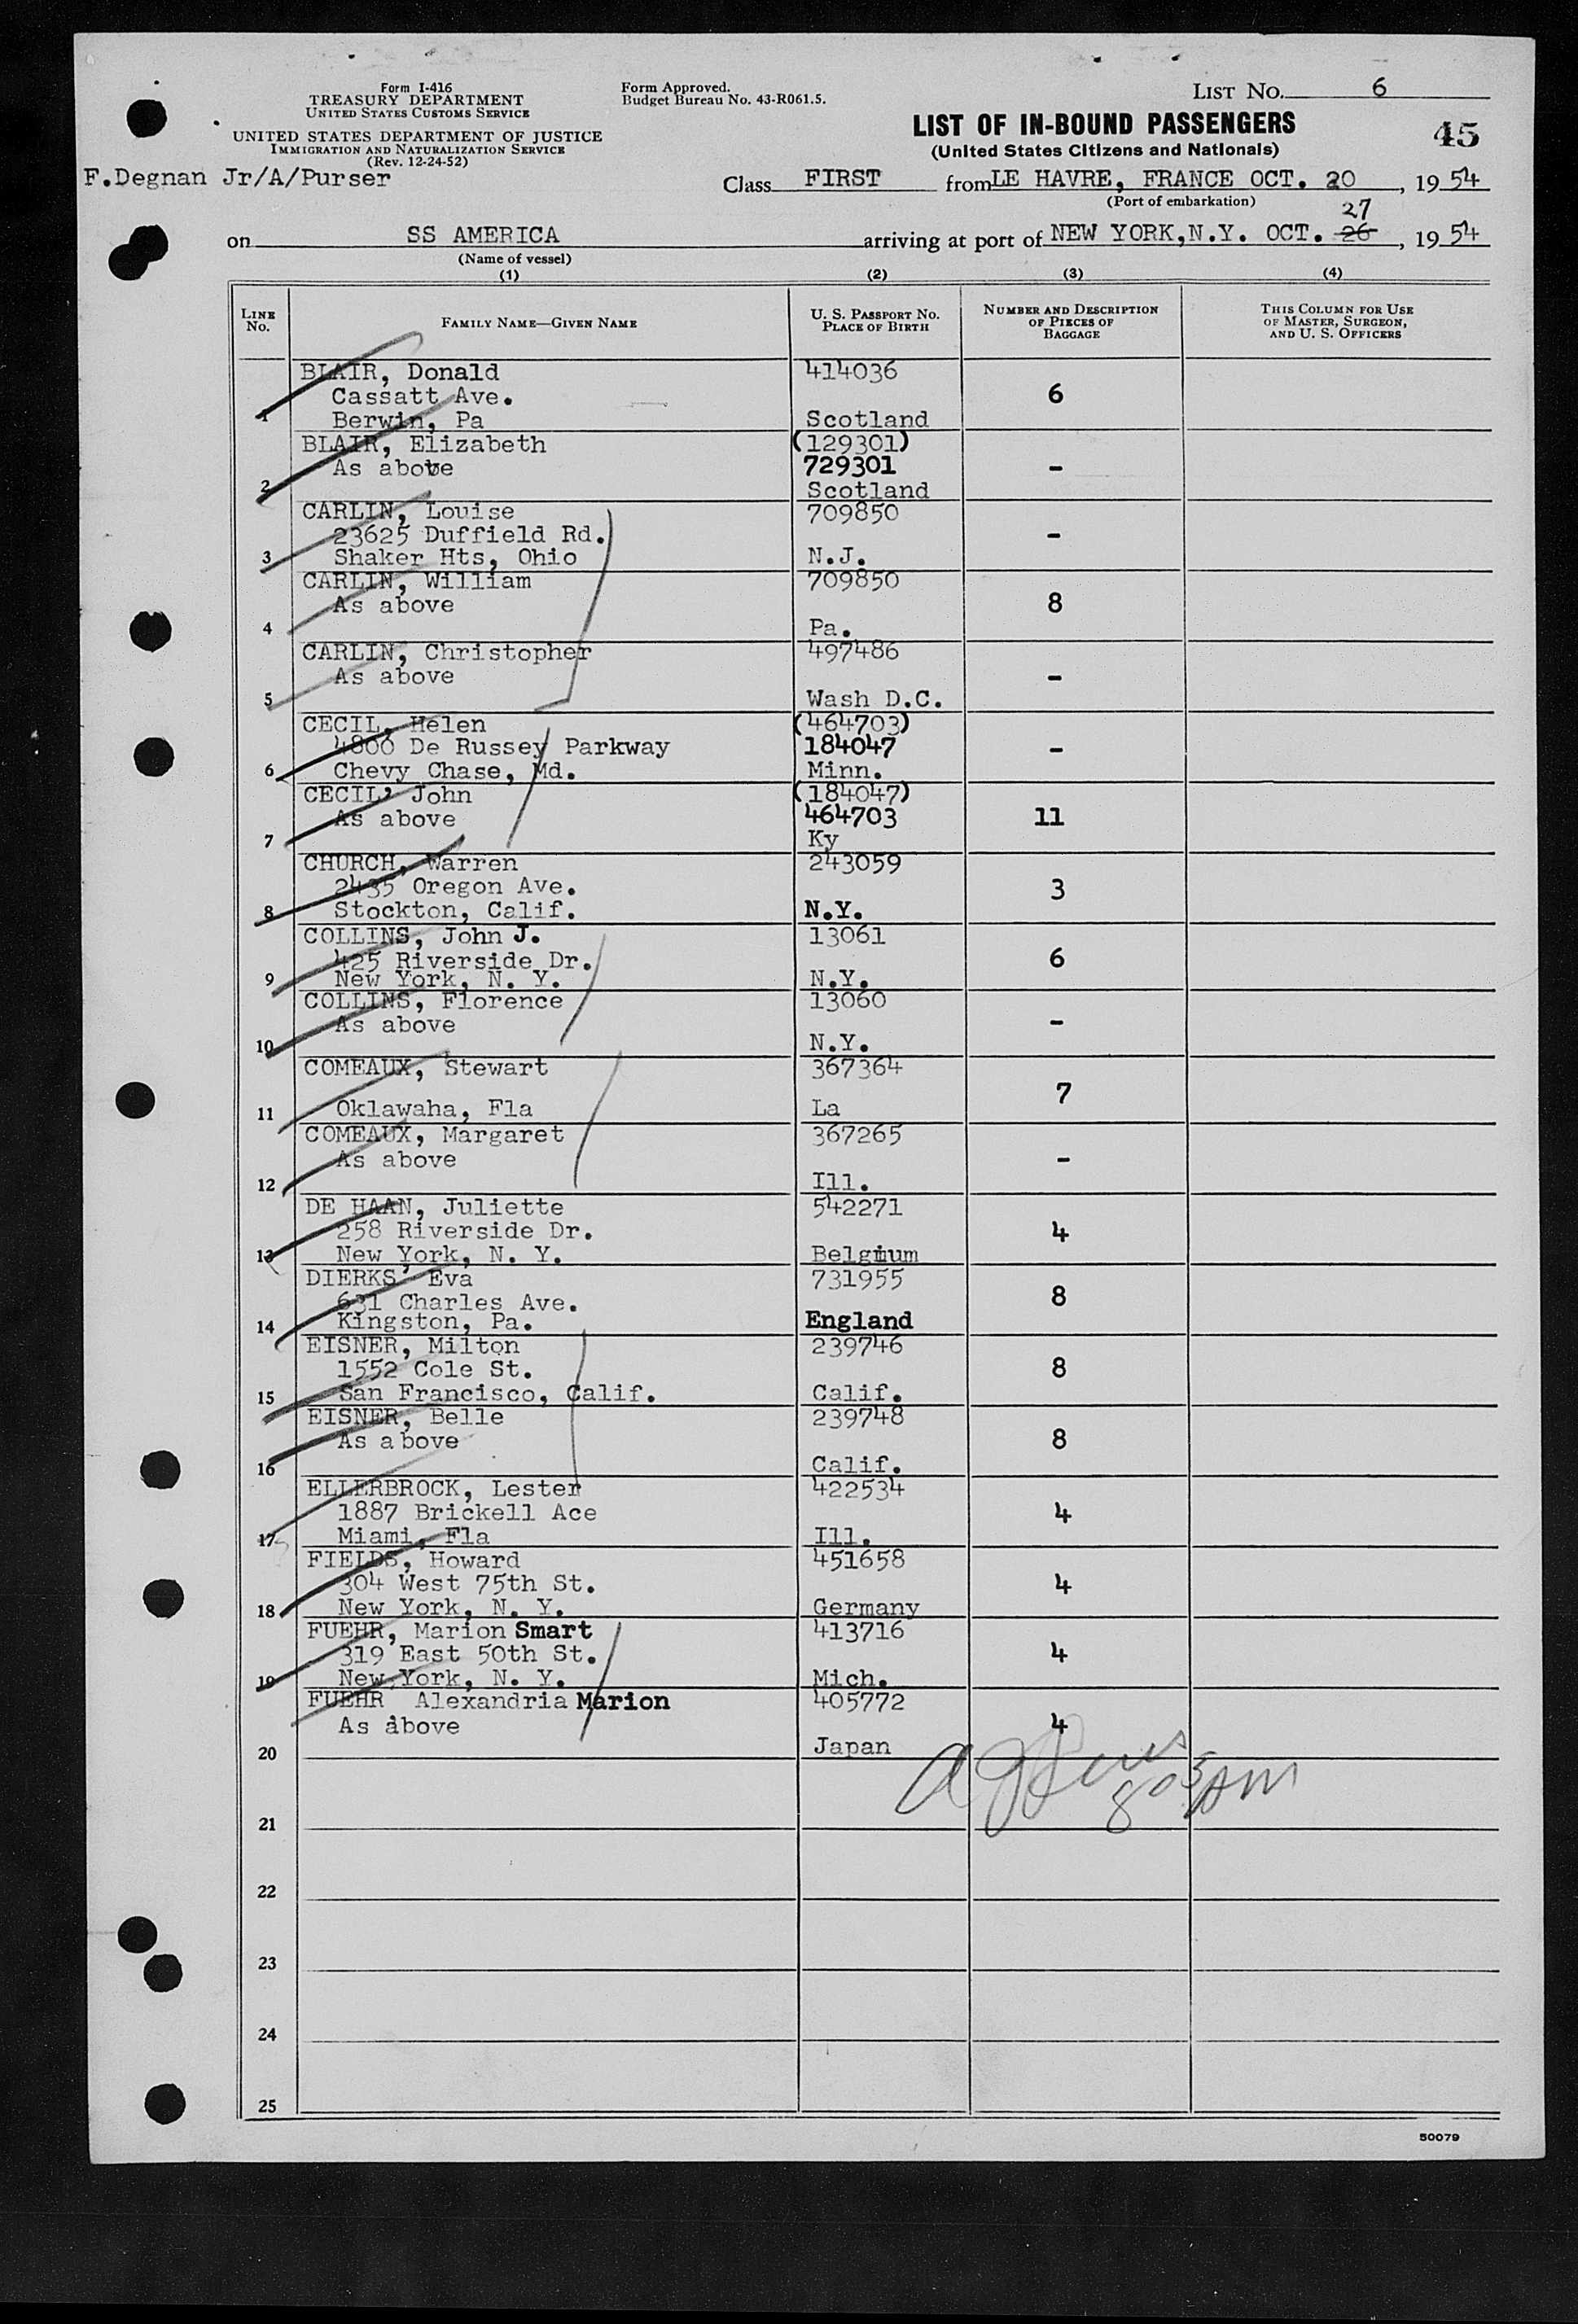 Form I-416
TREASURY DEPARTMENT
UNITED STATES CUSTOMS SERVICE
UNITED STATES DEPARTMENT OF JUSTICE
IMMIGRATION AND NATURALIZATION SERVICE
(Rev. 12-24-52)
F.Degnan Jr/A/Purser
Form Approved.
Budget Bureau No. 43-R061.5.
LIST NO. 6
LIST OF IN-BOUND PASSENGERS
(United States Citizens and Nationals)
45
Class FIRST from LE HAVRE, FRANCE OCT. 20, 1954
(Port of embarkation)
27
on SS AMERICA arriving at port of NEW YORK,N.Y. OCT. 26, 1954
(Name of vessel)
(1) (2) (3) (4)
LINE No.
FAMILY NAME—GIVEN NAME
U. S. PASSPORT NO.
PLACE OF BIRTH
NUMBER AND DESCRIPTION
OF PIECES OF
BAGGAGE
THIS COLUMN FOR USE
OF MASTER, SURGEON,
AND U. S. OFFICERS
BLAIR, Donald 414036
Cassatt Ave. 6
1 Berwin, Pa Scotland
BLAIR, Elizabeth (129301)
As above 729301 -
2 Scotland
CARLIN, Louise 709850
23625 Duffield Rd. -
3 Shaker Hts, Ohio N.J.
CARLIN, William 709850
As above 8
4 Pa.
CARLIN, Christopher 497486
As above -
5 Wash D.C.
CECIL, Helen (464703)
4800 De Russey Parkway 184047 -
6 Chevy Chase, Md. Minn.
CECIL, John (184047)
As above 464703 11
7 Ky
CHURCH, Warren 243059
2435 Oregon Ave. 3
8 Stockton, Calif. N.Y.
COLLINS, John J. 13061
425 Riverside Dr. 6
9 New York, N. Y. N.Y.
COLLINS, Florence 13060
As above -
10 N.Y.
COMEAUX, Stewart 367364
7
11 Oklawaha, Fla La
COMEAUX, Margaret 367265
As above -
12 Ill.
DE HAAN, Juliette 542271
258 Riverside Dr. 4
13 New York, N. Y. Belgium
DIERKS, Eva 731955
631 Charles Ave. 8
14 Kingston, Pa. England
EISNER, Milton 239746
1552 Cole St. 8
15 San Francisco, Calif. Calif.
EISNER, Belle 239748
As above 8
16 Calif.
ELLERBROCK, Lester 422534
1887 Brickell Ace 4
17 Miami, Fla Ill.
FIELDS, Howard 451658
304 West 75th St. 4
18 New York, N. Y. Germany
FUEHR, Marion Smart 413716
319 East 50th St. 4
19 New York, N. Y. Mich.
FUEHR Alexandria Marion 405772
As above 4
20 Japan
805 AM
21
22
23
24
25
50079